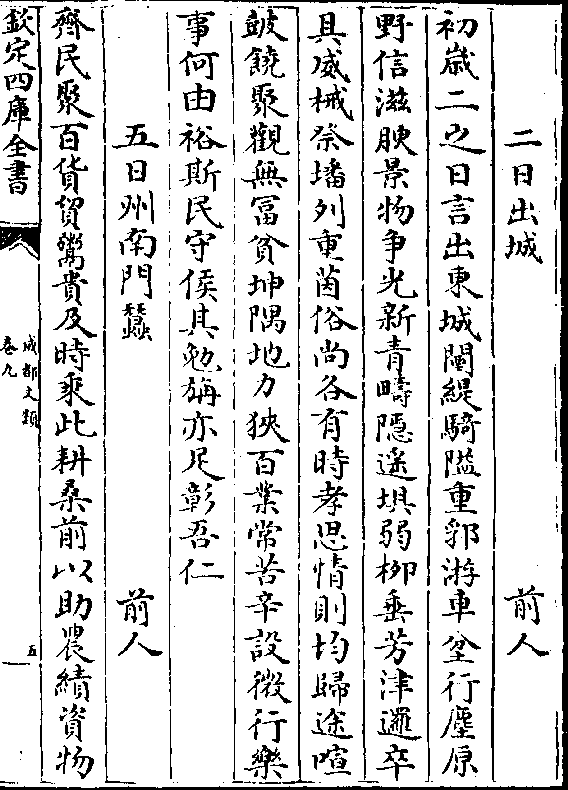 二日出城　前人
初歲二之日言出東城闉緹騎隘重郛游車坌行塵原
野信滋腴景物爭光新青疇隱遥埧弱柳垂芳津邏卒
具威械祭墦列重茵俗尚各有時孝思情則均歸途喧
皷饒聚觀無冨貧坤隅地力狹百業常苦辛設微行樂
事何由裕斯民守侯其勉旃亦足彰吾仁
五日州南門蠶　前人
齊民聚百貨貿鬻貴及時乗此耕桑前以助農績資物
欽定四庫全書
成都文類
卷九
五